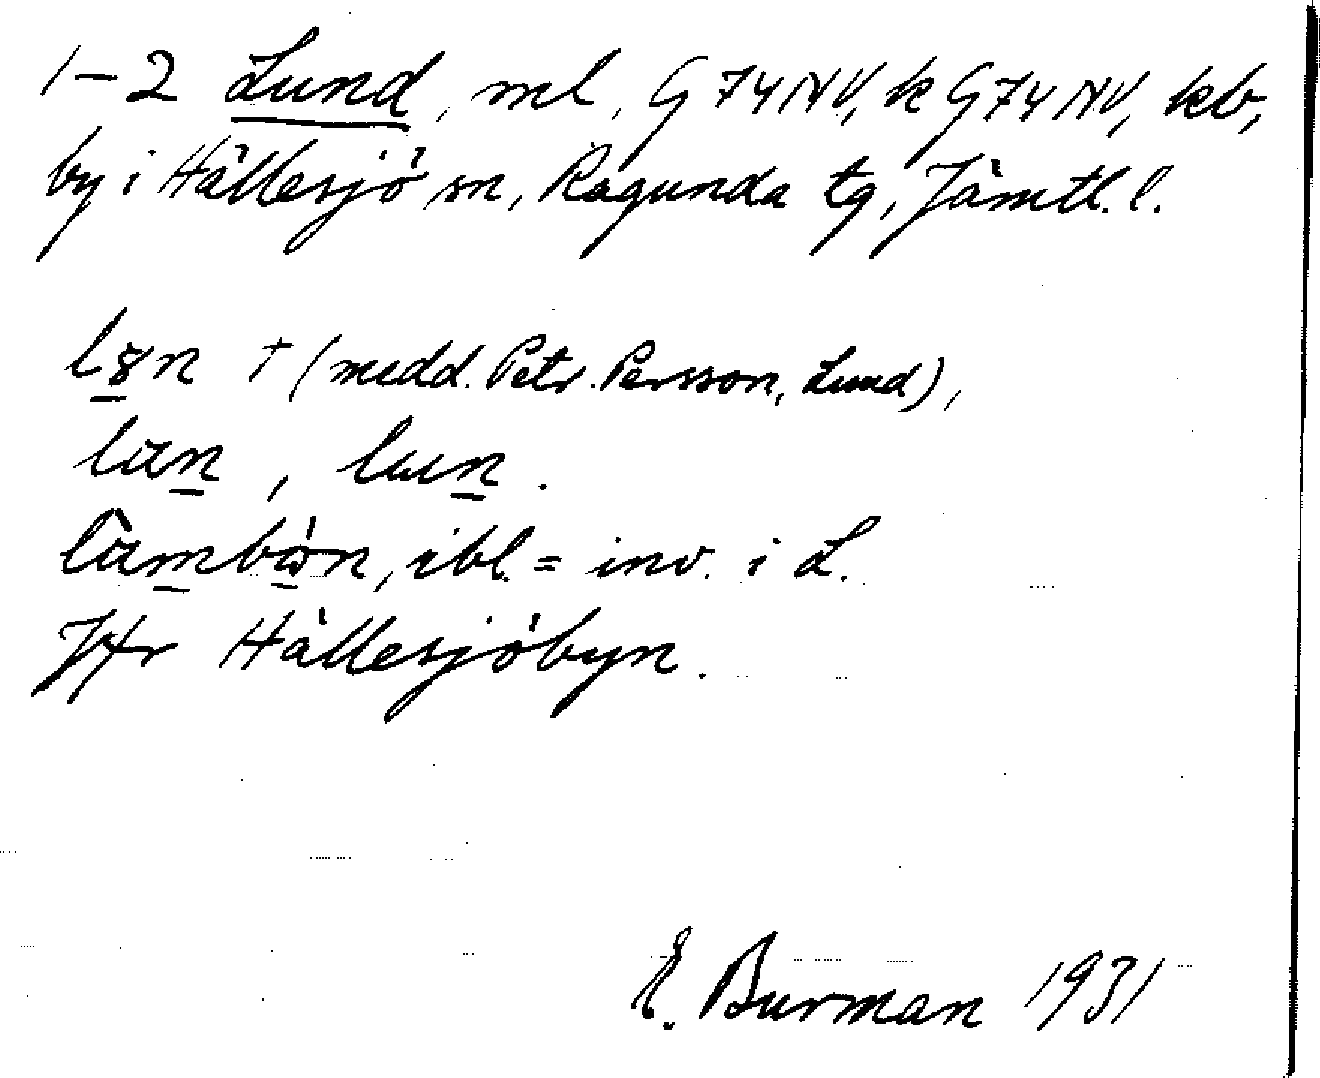 1–2 Lund, ml, G74NV, k G74NV, kb,
by i Hällesjö sn, Ragunda tg, Jämtl. l.
† (medd. Petr. Persson, Lund),
ibl. = inv. i L.
Jfr Hällesjöbyn.
E. Burman 1931